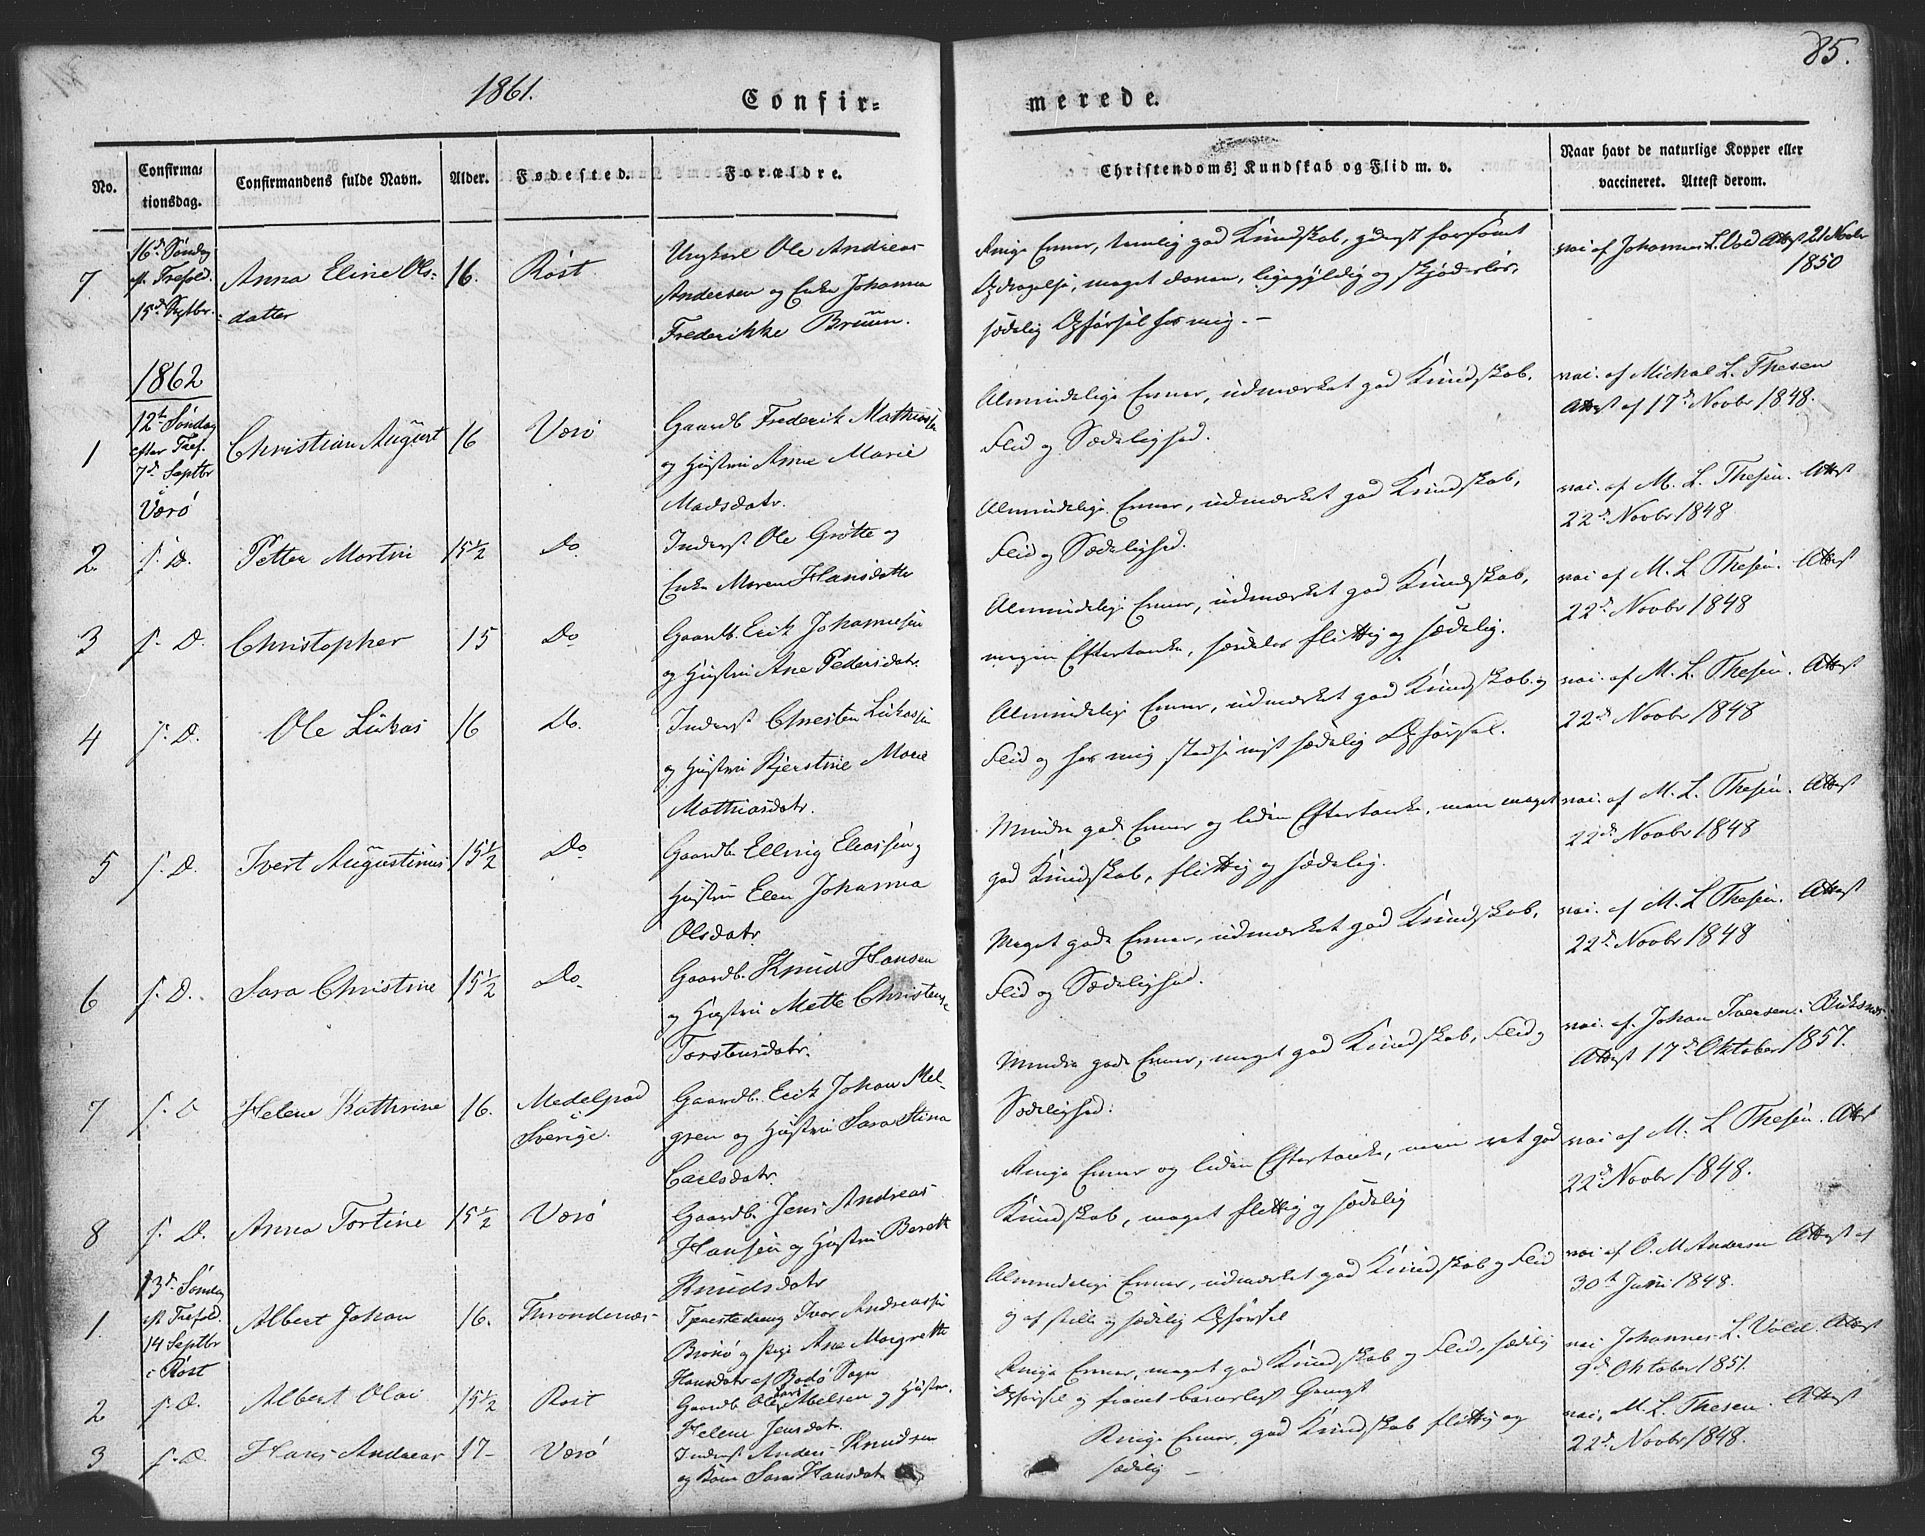 1861.
Confir-
merede.
85.
No.
Confirma-
tionsdag.
Confirmandens fulde Navn.
Alder.
Fødested.
Forældre.
Christendoms Kundskab og Flid m. v.
Naar havt de naturlige Kopper eller
vaccineret. Attest derom.
7.
16d Søndag
ef. Trefold.
15d Septbr.
Anna Eline Ols-
datter
16.
Röst
Ungkarl Ole Andreas
Andersen og Enke Johanna
Frederikke Bruun.
Ringe Evner, temlig god Kundskab, yderst forsömt
Opdragelse, meget doven, ligegyldig og skjödeslös,
sædelig Opförsel hos mig. -
vac. af Johannes L. Vold Attest 21 Novbr
1850
1862
1
12te Søndag
efter Tref.
7d Septbr
i
Værö
Christian August
16
Værö
Gaardb. Frederik Mathiassen
og Hustru Ane Marie
Madsdatr.
Almindelige Evner, udmærket god Kundskab,
Flid og Sædelighed.
vac. af Michal L. Thesen
Attest af 17d Novbr 1848.
2.
s. D.
Petter Martin
15½
Do
Inderst Ole Grötte og
Enke Maren Hansdatter
Almindelige Evner, udmærket god Kundskab,
Flid og Sædelighed.
vac. af M. L. Thesen. Attest
22d Novbr 1848
3
s. D.
Christopher
15
Do
Gaardb. Erik Johannesen
og Hustru Ane Pedersdatr.
Almindelige Evner, udmærket god Kundskab,
megen Eftertanke, særdeles flittig og sædelig.
vac. af M. L Thesen. Attest
22d Novbr 1848
4
s. D.
Ole Lukas
16
Do.
Inderst Chresten Lukassen
og Hustru Kjerstine Marie
Mathiasdatr.
Almindelige Evner, udmærket god Kundskab og
Flid og hos mig stedse nist sædelig Opförsel.
vac. af M. L. Thesen. Attest
22d Novbr 1848
5
s. D.
Ivert Augustinus
15½
Do
Gaardb. Elling Eleassen og
Hustru Elen Johanna
Olsdatr.
Mindre gode Evner og liden Eftertanke, men meget
god Kundskab, flittig og sædelig.
vac. af M. L. Thesen. Attest
22d Novbr 1848
6
s. D.
Sara Christine
15½
Do.
Gaardb. Knud Hansen
og Hustru Mette Christense
Torstensdatr.
Meget gode Evner, udmærket god Kundskab,
Flid og Sædelighed.
vac. af M. L Thesen. Attest
22d Novbr 1848
7
s. D
Helene Kathrine
16.
Medelpad
Sverige.
Gaardb. Erik Johan Mel-
gren og Hustru Sara Stina
Carlsdatr.
Mindre gode Evner, meget god Kundskab, Flid og
Sædelighed.
vac. af. Johan Iversen
Attest 17d Oktober 1857.
8
s. D.
Anna Tortine
15½
Værö
Gaardb. Jens Andreas
Hansen og Hustru Berett
Knudsdatr
Ringe Evner og liden Eftertanke, men ret god
Kundskab, meget flittig og sædelig
vac af M. L Thesen. Attest
22d Novbr 1848.
1.
13d Søndag
ef Trefold.
14 Septbr
i Röst
Albert Johan
16.
Throndenæs
Tjenestedreng Ivar Andreassen
Brönö og Pige Ane Margrethe
Hansdatr af Bodö Sogn
Almindelige Evner, udmærket god Kundskab og Flid
og af stille og sædelig Opförsel
vac af O. M Andersen Attest af
30te Juni 1848.
2
s. D.
Albert Olai
15½
Röst
Gaardb Ole Lars Nielsen og Hustru
Helene Jensdatr.
Ringe Evner, meget god Kundskab og Flid, sædelig
Opförsel og
vac Johannes L. Vold. Attest
9d Oktober 1851.
3
s. D.
Hans Andreas
17-
Værö
Inderst Anders Knudsen
og Kone Sara Hansdatr
Ringe Evner, god Kundskab flittig og
sædelig -
vac. M. L. Thesen. Attest
22d Novbr 1848.